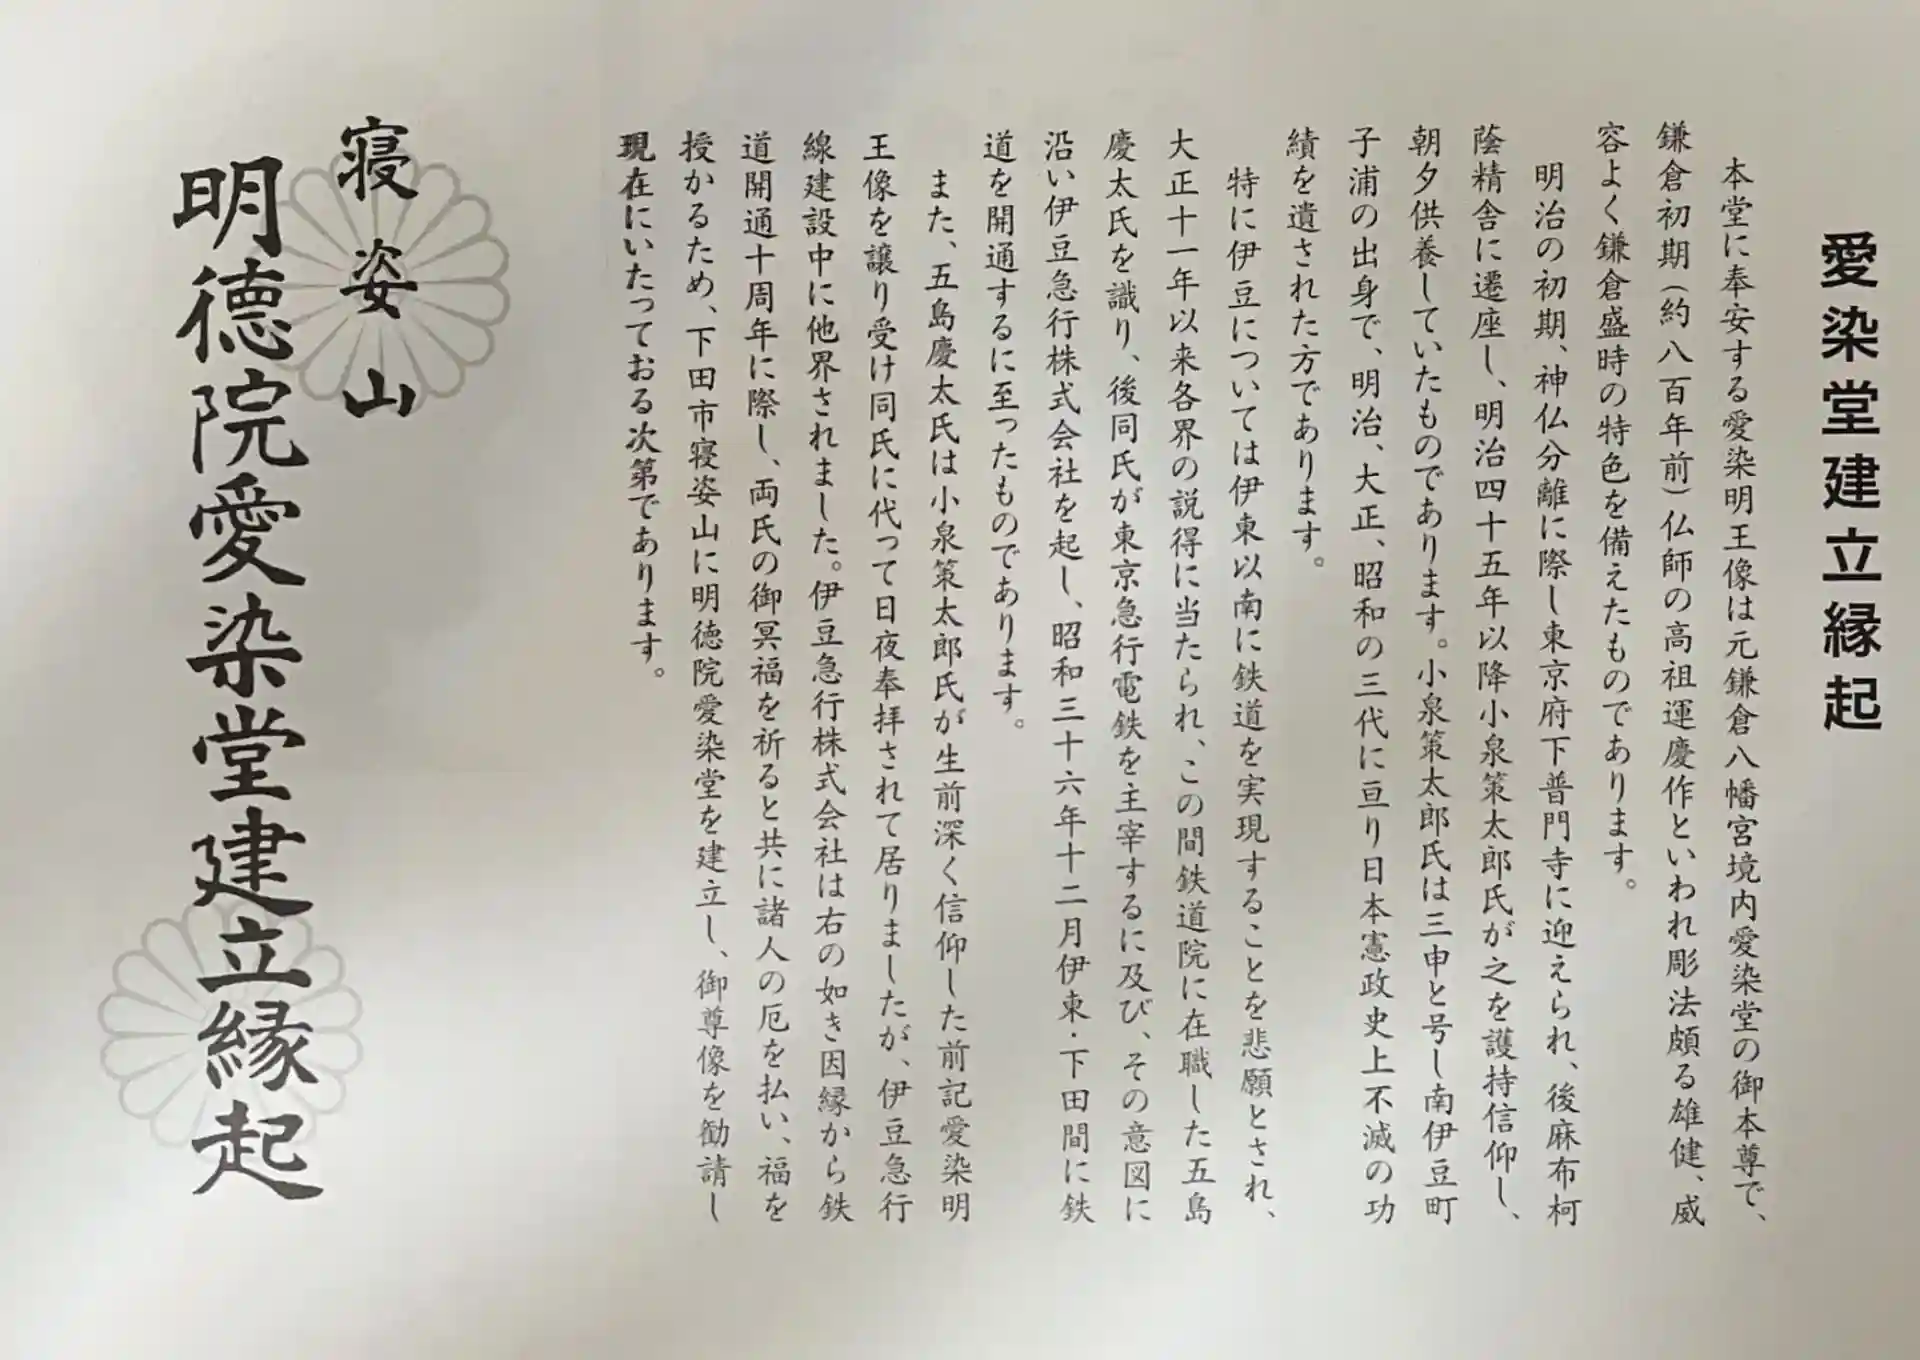 愛染堂建立縁起
本堂に奉安する愛染明王像は元鎌倉八幡宮境内愛染堂の御本尊で、
鎌倉初期(約八百年前)仏師の高祖運慶作といわれ彫法頗る雄健、威
容よく鎌倉盛時の特色を備えたものであります。
明治の初期、神仏分離に際し東京府下普門寺に迎えられ、後麻布柯
蔭精舎に遷座し、明治四十五年以降小泉策太郎氏が之を護持信仰し、
朝夕供養していたものであります。小泉策太郎氏は三申と号し南伊豆町
子浦の出身で、明治、大正、昭和の三代に亘り日本憲政史上不滅の功
績を遺された方であります。
特に伊豆については伊東以南に鉄道を実現することを悲願とされ、
大正十一年以来各界の説得に当たられ、この間鉄道院に在職した五島
慶太氏を識り、後同氏が東京急行電鉄を主宰するに及び、その意図に
沿い伊豆急行株式会社を起し、昭和三十六年十二月伊東・下田間に鉄
道を開通するに至ったものであります。
また、五島慶太氏は小泉策太郎氏が生前深く信仰した前記愛染明
王像を譲り受け同氏に代って日夜奉拝されて居りましたが、伊豆急行
線建設中に他界されました。伊豆急行株式会社は右の如き因縁から鉄
道開通十周年に際し、両氏の御冥福を祈ると共に諸人の厄を払い、福を
授かるため、下田市寝姿山に明徳院愛染堂を建立し、御尊像を勧請し
現在にいたっておる次第であります。
寝姿山
明徳院愛染堂建立縁起